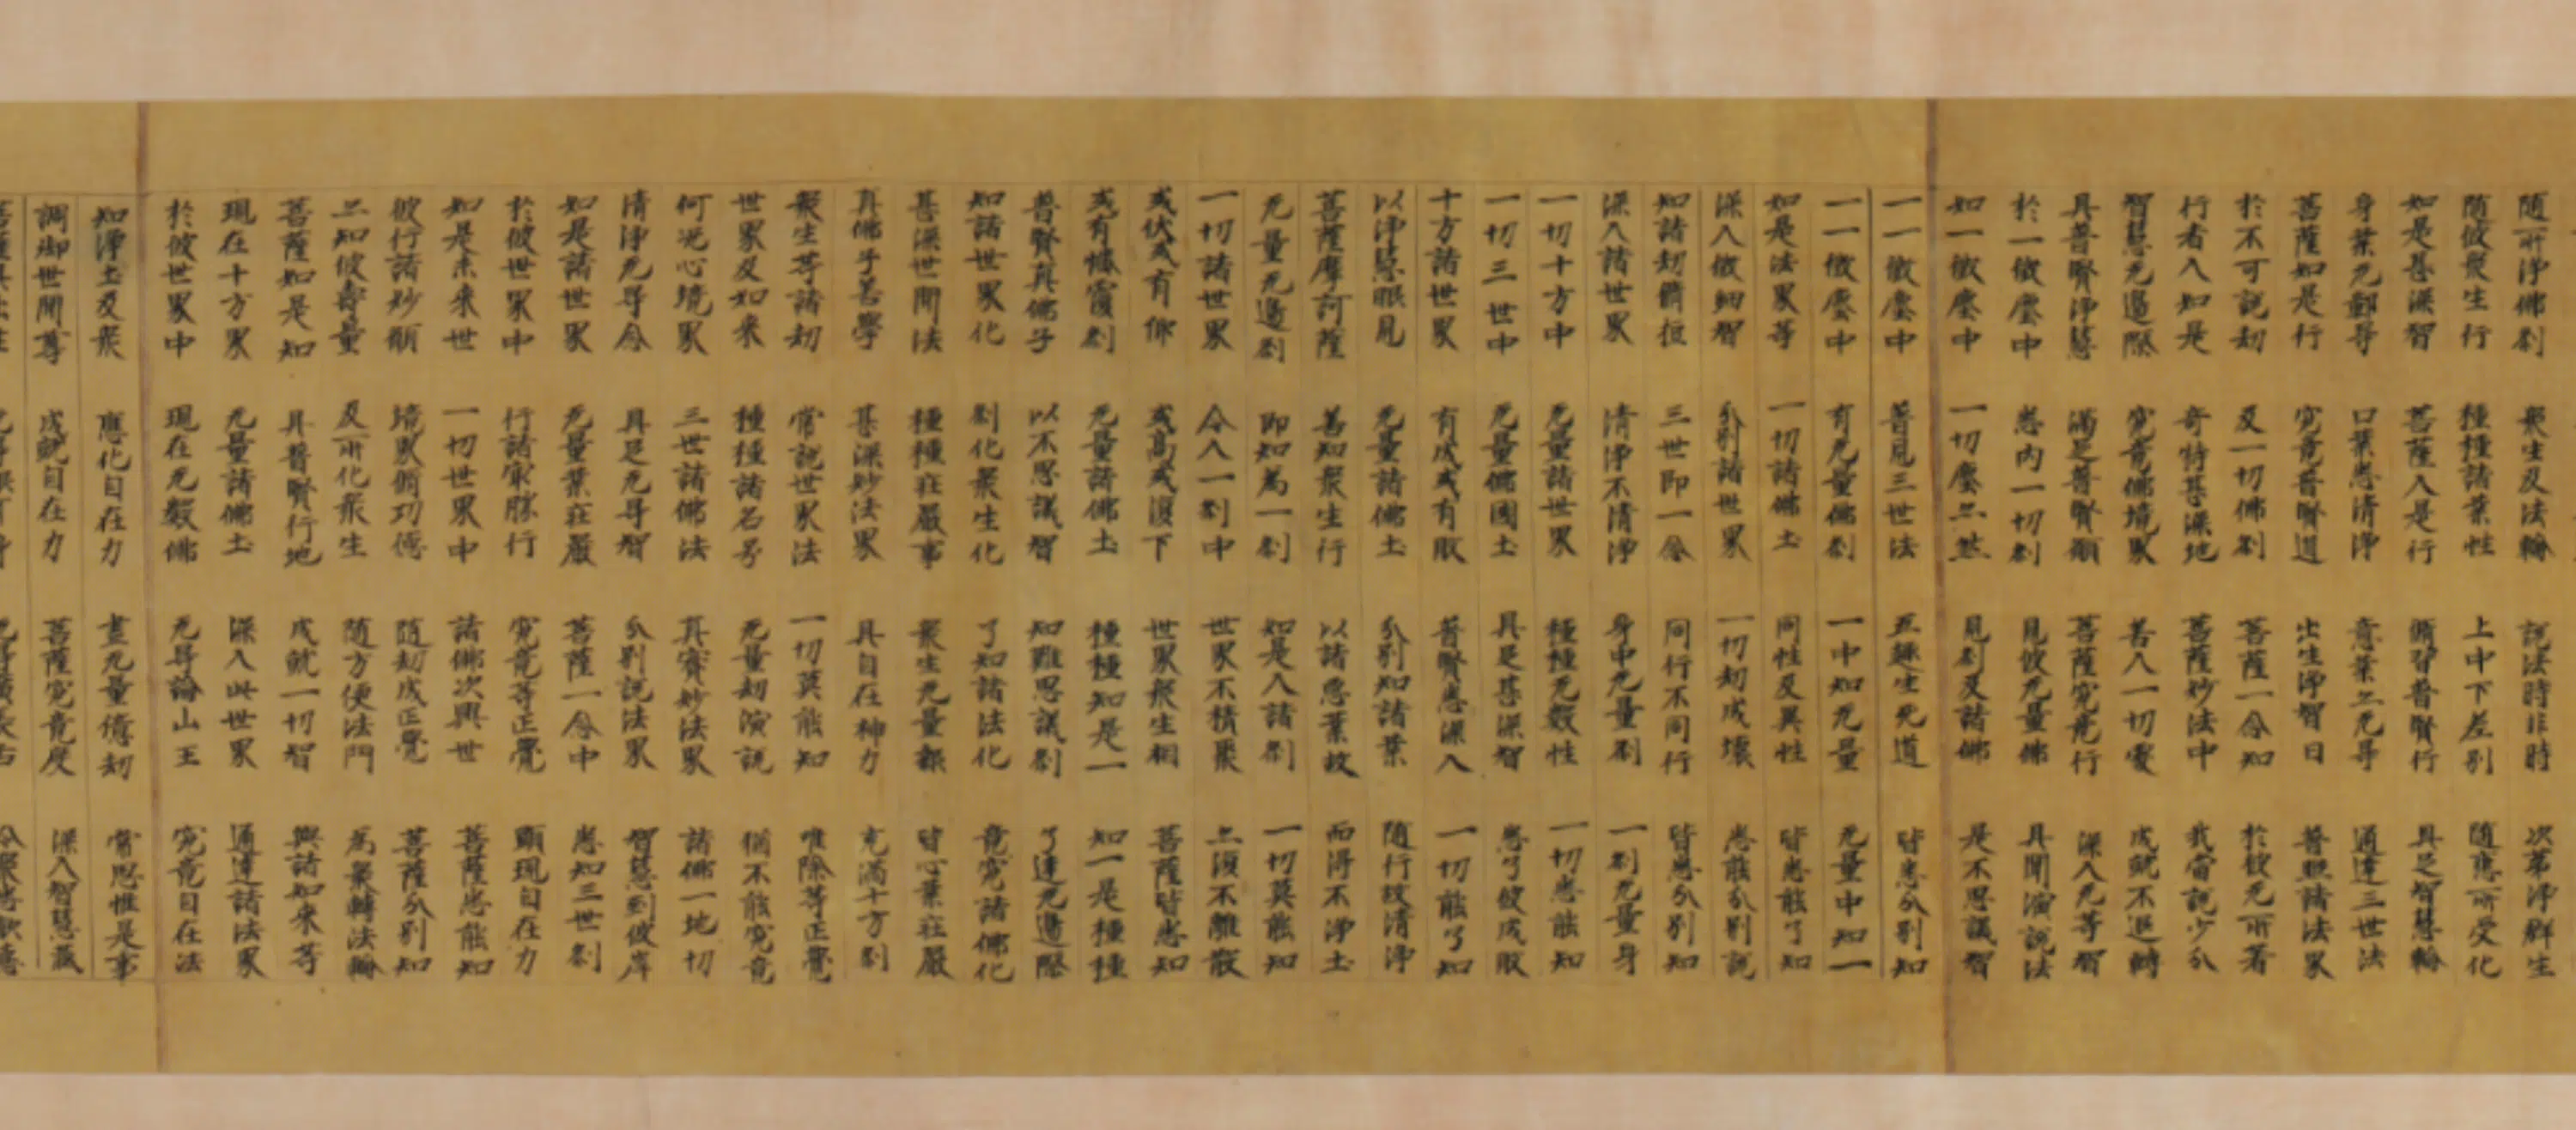 随所淨佛刹 衆生及法輪 說法時非時 次第淨群生
随彼衆生行 種種諸業性 上中下差别 随應所受化
如是甚深智 菩薩入是行 脩習普賢行 具足智慧輪
身業无鄣㝵 口業悉清淨 意業亦无㝵 通達三世法
菩薩如是行 究竟普賢道 出生淨智日 普照諸法界
於不可說劫 及一切佛刹 菩薩一念知 於彼无所著
行者入知是 奇特甚深地 菩薩妙法中 我當說少分
智慧无邊際 究竟佛境界 善入一切處 成就不退轉
具普賢淨慧 滿足普賢願 菩薩究竟行 深入无等智
於一微塵中 悉內一切刹 見彼无量佛 具聞演說法
如一微塵中 一切塵亦然 見刹及諸佛 是不思議智
一一微塵中 普見三世法 五趣生死道 皆悉分别知
一一微塵中 有无量佛刹 一中知无量 无量中知一
如是法界等 一切諸佛土 同性及異性 皆悉能了知
深入微細智 分别諸世界 一切劫成壞 悉能分别說
知諸劫脩短 三世即一念 同行不同行 皆悉分别知
深入諸世界 清淨不清淨 身中无量刹 一刹无量身
一切十方中 无量諸世界 種種无數性 一切悉能知
一切三世中 无量佛國土 具足甚深智 悉了彼成敗
十方諸世界 有成或有敗 普賢悉深入 一切能了知
以淨慧眼見 无量諸佛土 分别知諸業 随行故清淨
菩薩摩訶薩 善知衆生行 以諸惡業故 而得不淨土
无量无邊刹 即知為一刹 如是入諸刹 一切莫能知
一切諸世界 令入一刹中 世界不積聚 亦復不離散
或伏或有仰 或高或復下 世界衆生相 菩薩皆悉知
或有憣覆刹 无量諸佛土 種種知是一 知一是種種
普賢真佛子 以不思議智 知難思議刹 了達无邊際
知諸世界化 刹化衆生化 了知諸法化 竟究諸佛化
甚深世間法 種種莊嚴事 衆生无量類 皆心業莊嚴
真佛子善學 甚深妙法界 具自在神力 充滿十方刹
衆生等諸劫 常說世界法 一切莫能知 唯除等正覺
世界及如來 種種諸名号 无量劫演說 猶不能究竟
何況心境界 三世諸佛法 真實妙法界 諸佛一地切
清淨无㝵念 具足无㝵智 分别說法界 智慧到彼岸
如是諸世界 无量業莊嚴 菩薩一念中 悉知三世刹
於彼世界中 行諸㝡勝行 究竟等正覺 顯現自在力
知是未來世 一切世界中 諸佛次興世 菩薩悉能知
彼行諸妙願 境界脩功德 随劫成正覺 菩薩分别知
亦知彼壽量 及所化衆生 随方便法門 為衆轉法輪
菩薩知是知 具普賢行地 成就一切智 興諸如來等
現在十方界 无量諸佛土 深入此世界 通達諸法界
於彼世界中 現在无數佛 无㝵論山王 究竟自在法
知淨土及衆 應化自在力 盡无量億劫 常思惟是事
調御世間尊 成就自在力 菩薩究竟度 深入智慧藏